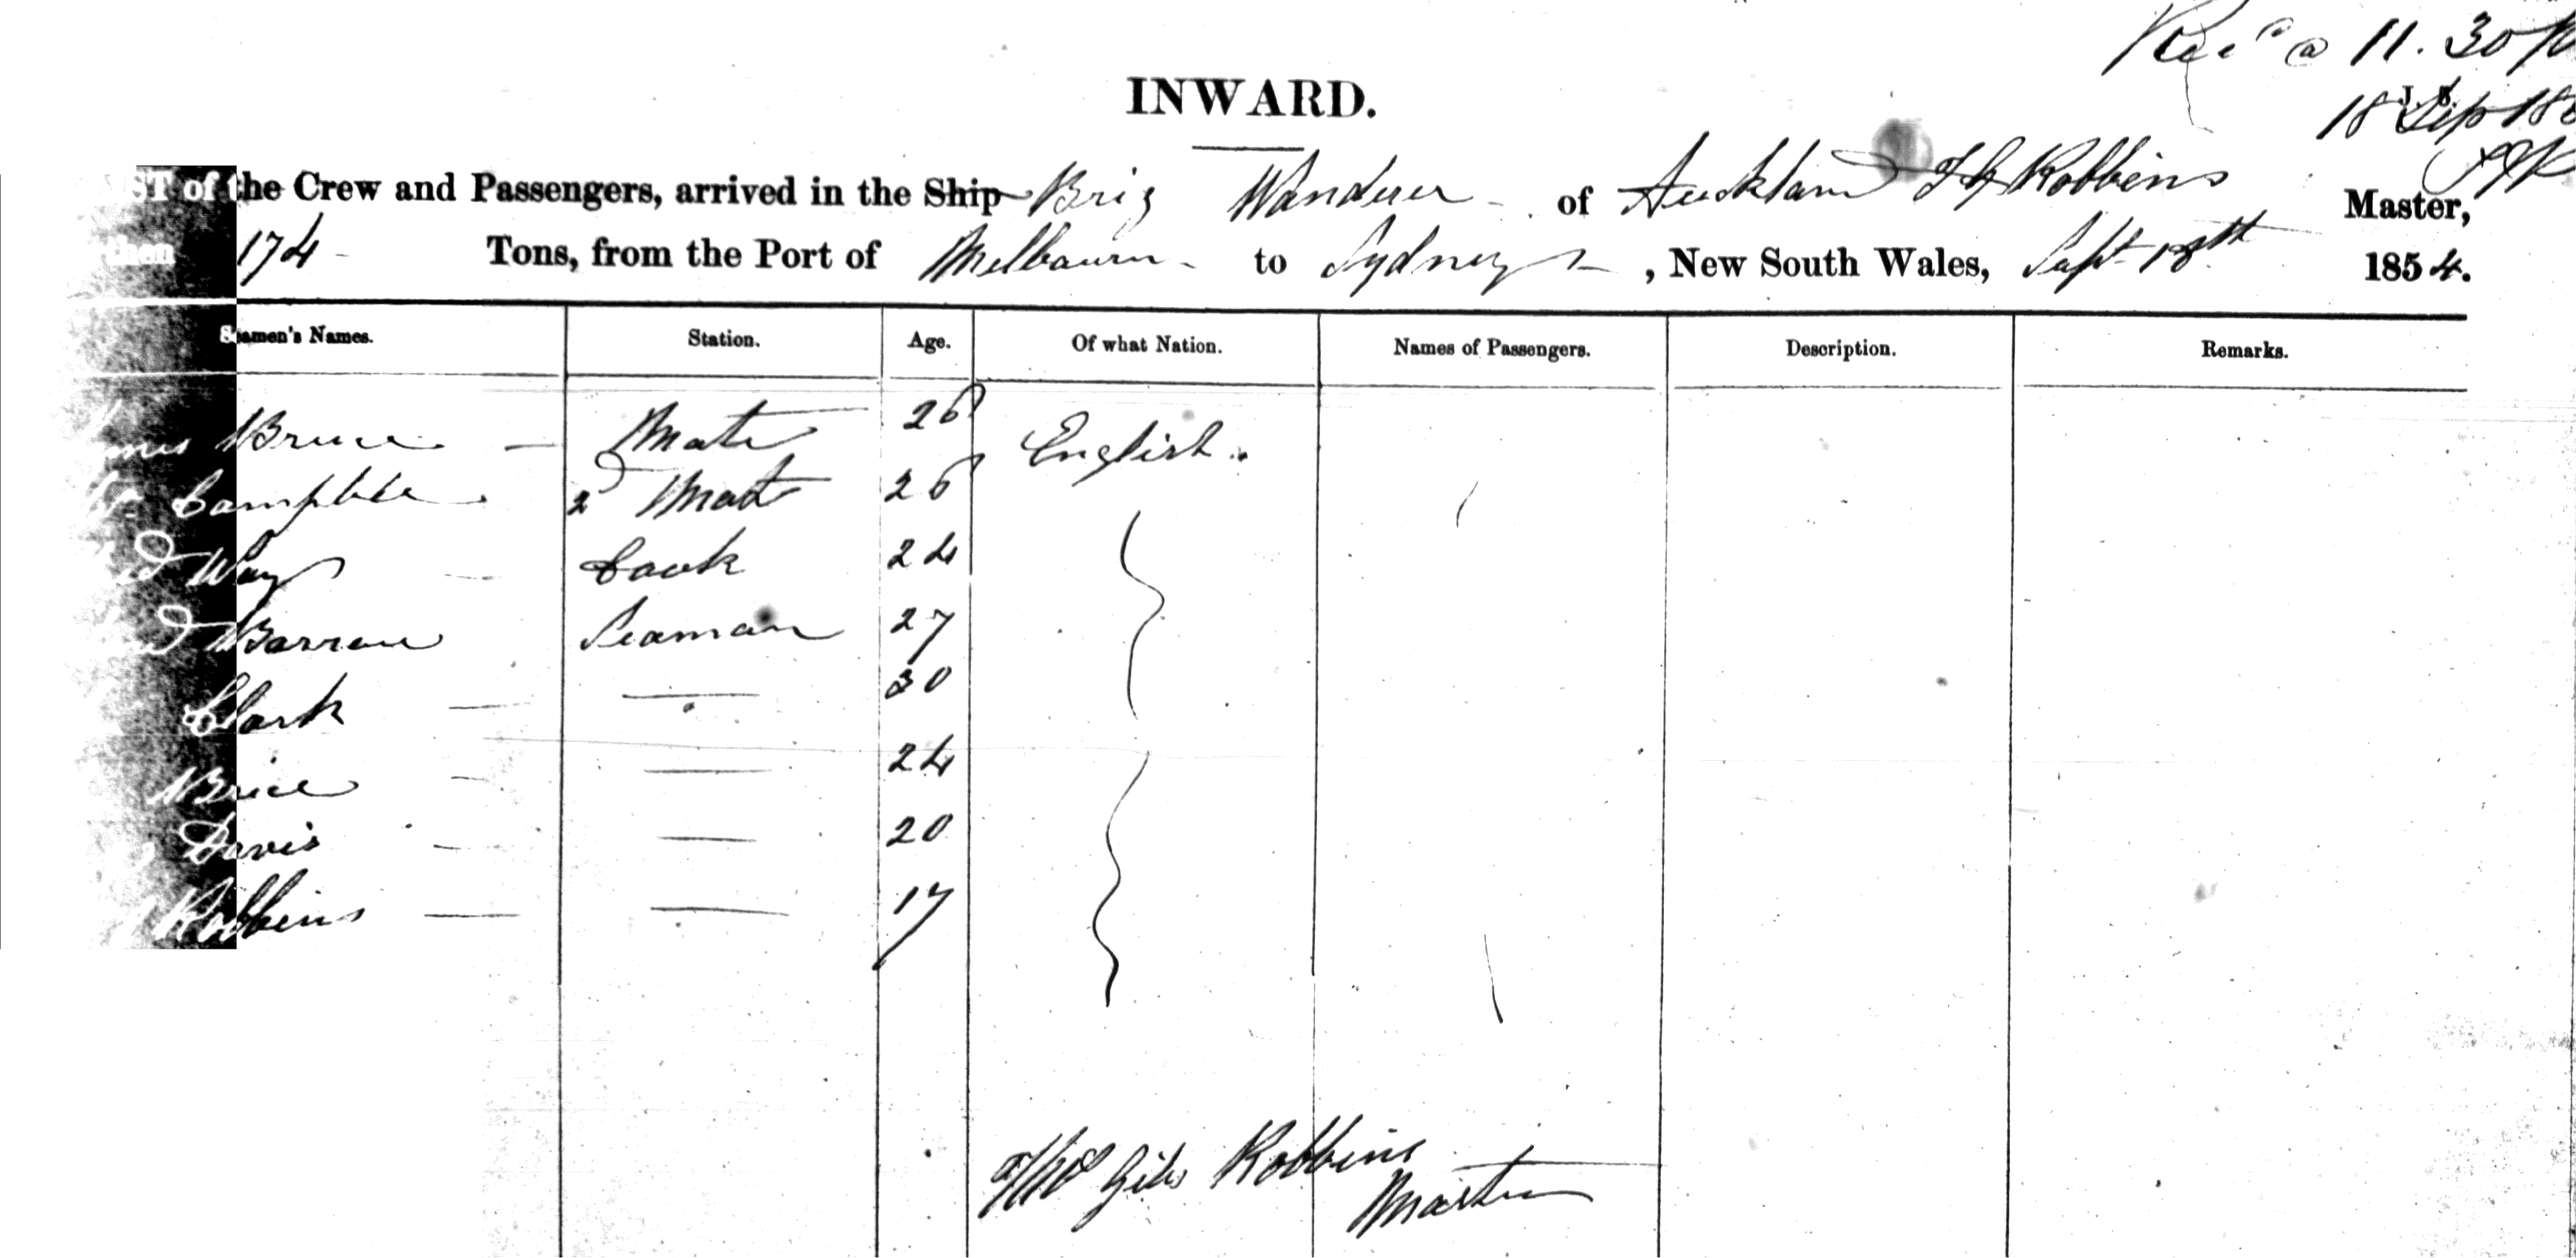 Rec'd @ 11.30
18 Sep 18
INWARD.
ST of the Crew and Passengers, arrived in the Ship Brig Wanderer of Auckland T G Robbins Master,
then 174 Tons, from the Port of Melbourn to Sydney, New South Wales, Sept 18th 1854.
Seamen's Names. Station. Age. Of what Nation. Names of Passengers. Description. Remarks.
Bruce — Mate 26 English.
Campbell 2 Mate 26
Way — Cook 24
Barrow Seaman 27
Clark — — 30
Brice — — 24
Davis — — 20
Robbins — — 17
Giles Robbins
Master